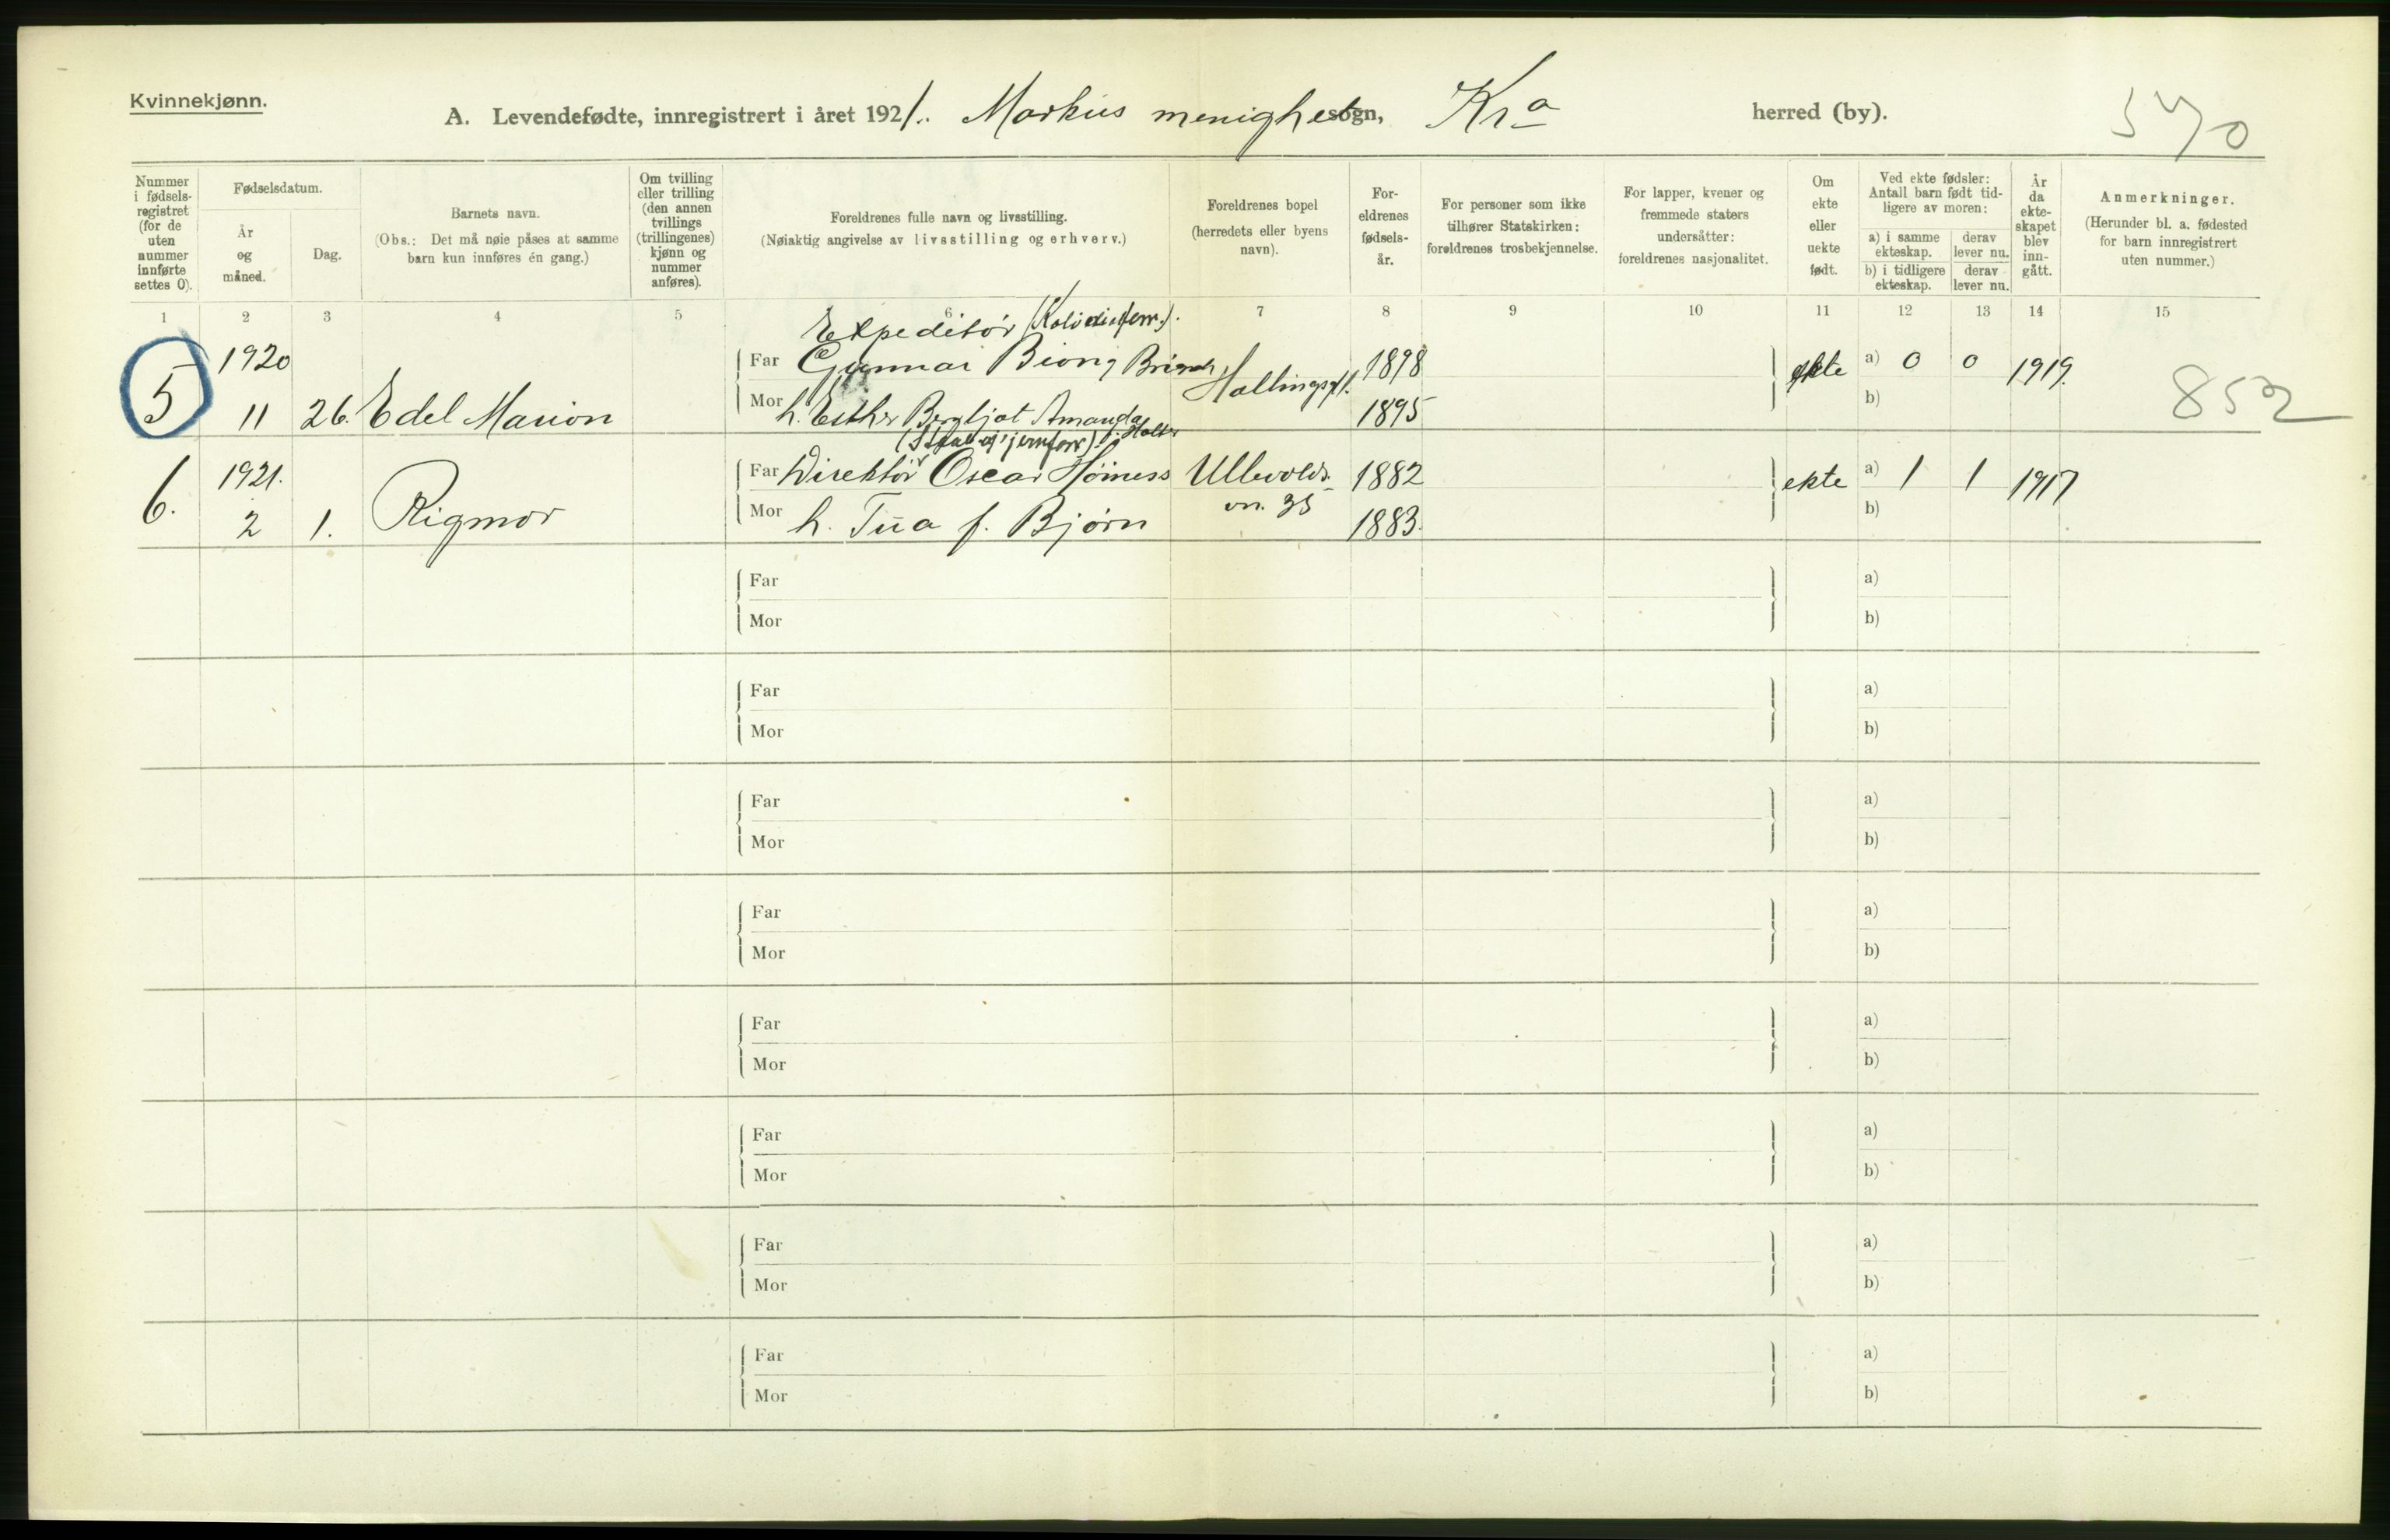 Kvinnekjønn.
A. Levendefødte, innregistrert i året 1921. Markus menighet sogn, Kra herred (by).
540
Nummer i fødselsregistret (for de uten nummer innførte settes 0).
Fødselsdatum.
År og måned.
Dag.
Barnets navn.
(Obs.: Det må nøie påses at samme barn kun innføres én gang.)
Om tvilling eller trilling (den annen tvillings (trillingenes) kjønn og nummer anføres).
Foreldrenes fulle navn og livsstilling.
(Nøiaktig angivelse av livsstilling og erhverv.)
Foreldrenes bopel (herredets eller byens navn).
Foreldrenes fødselsår.
For personer som ikke tilhører Statskirken: foreldrenes trosbekjennelse.
For lapper, kvener og fremmede staters undersåtter: foreldrenes nasjonalitet.
Om ekte eller uekte født.
Ved ekte fødsler: Antall barn født tidligere av moren:
a) i samme ekteskap.
derav lever nu.
b) i tidligere ekteskap.
derav lever nu.
År da ekteskapet blev inngått.
Anmerkninger.
(Herunder bl. a. fødested for barn innregistrert uten nummer.)
1 2 3 4 5 6 7 8 9 10 11 12 13 14 15
Expeditør
5 1920 11 26. Edel Marion
Far Gunnar Biong
Mor h. Esther Bergljot Amanda f. Holter
1898
1895
ekte a) 0 0 1919.
b)
852
6. 1921. 2 1. Rigmor
Far Direktør Oscar Høiness
Mor h. Tua f. Bjørn
Ullevolds-
vn. 35
1882
1883.
ekte a) 1 1 1917
b)
Far a)
Mor b)
Far a)
Mor b)
Far a)
Mor b)
Far a)
Mor b)
Far a)
Mor b)
Far a)
Mor b)
Far a)
Mor b)
Far a)
Mor b)